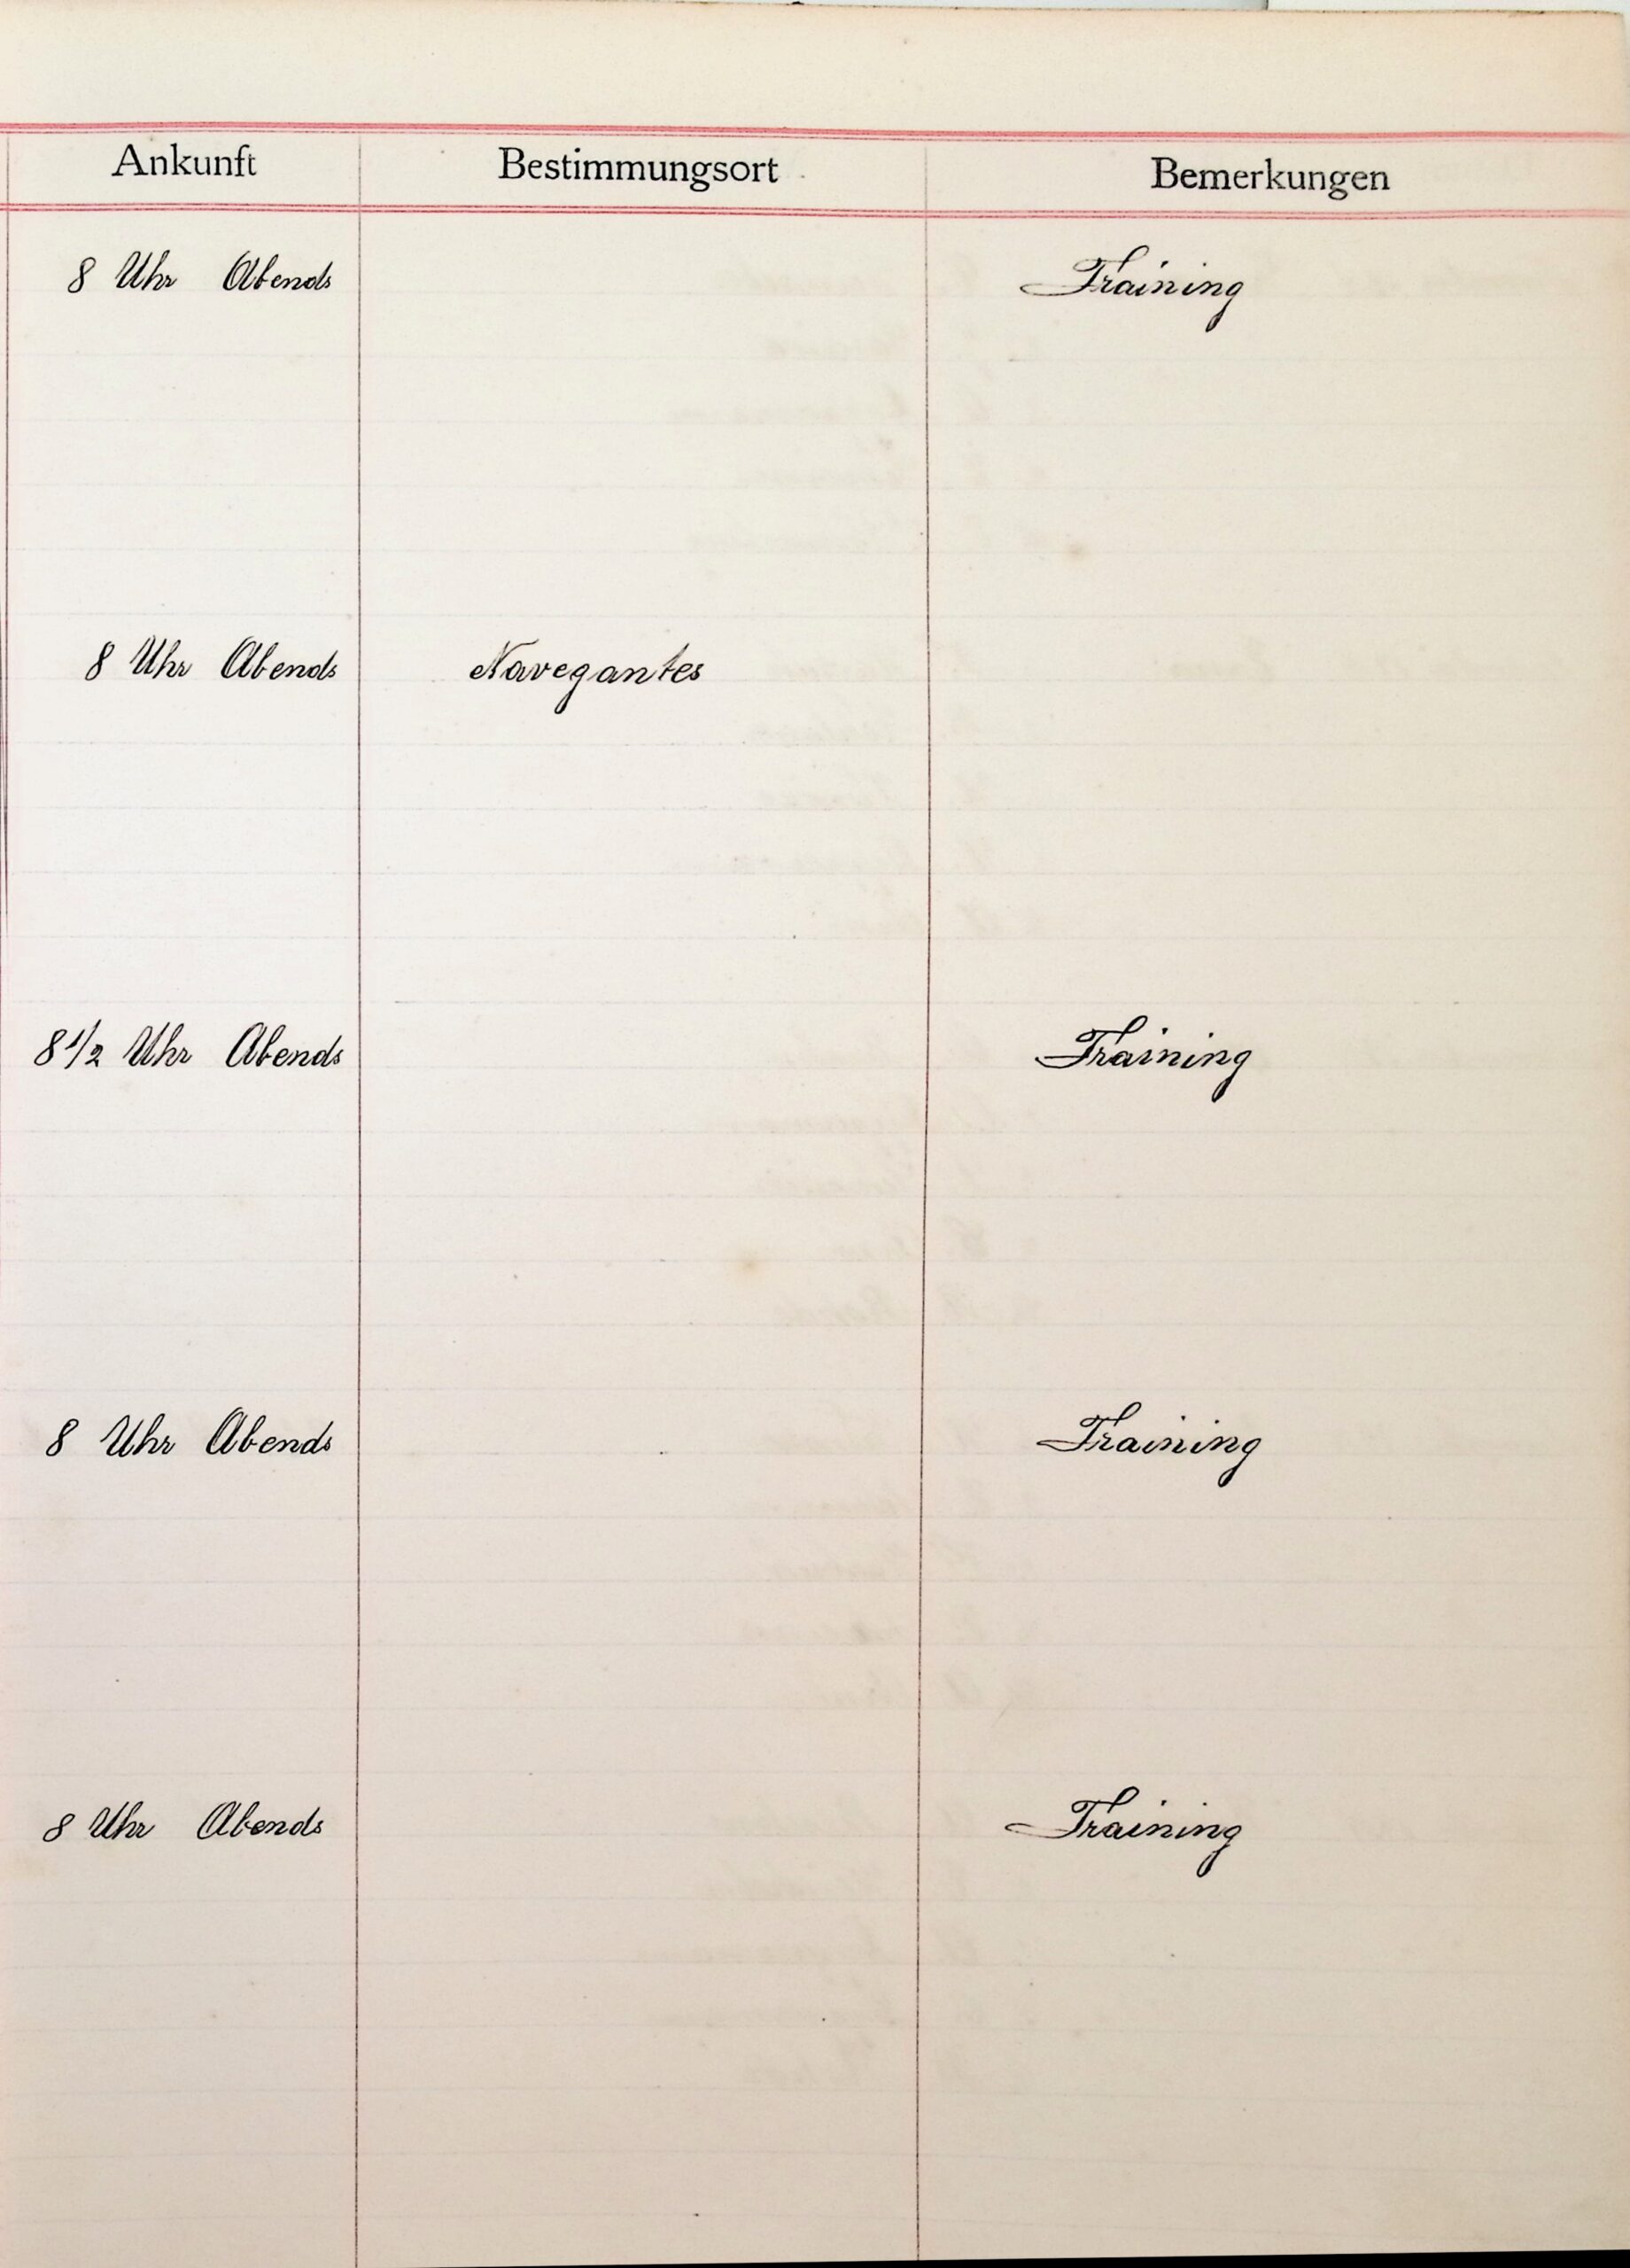 Ankunft Bestimmungsort Bemerkungen
8 Uhr Abends Training
8 Uhr Abends Navegantes
8 1/2 Uhr Abends Training
8 Uhr Abends Training
8 Uhr Abends Training